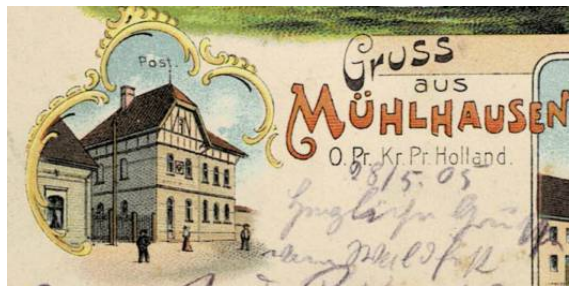 Post.
Gruss
aus
MÜHLHAUSEN
O. Pr. Kr. Pr. Holland.
28/5. 05
Herzliche Grüsse
vom Waldfest